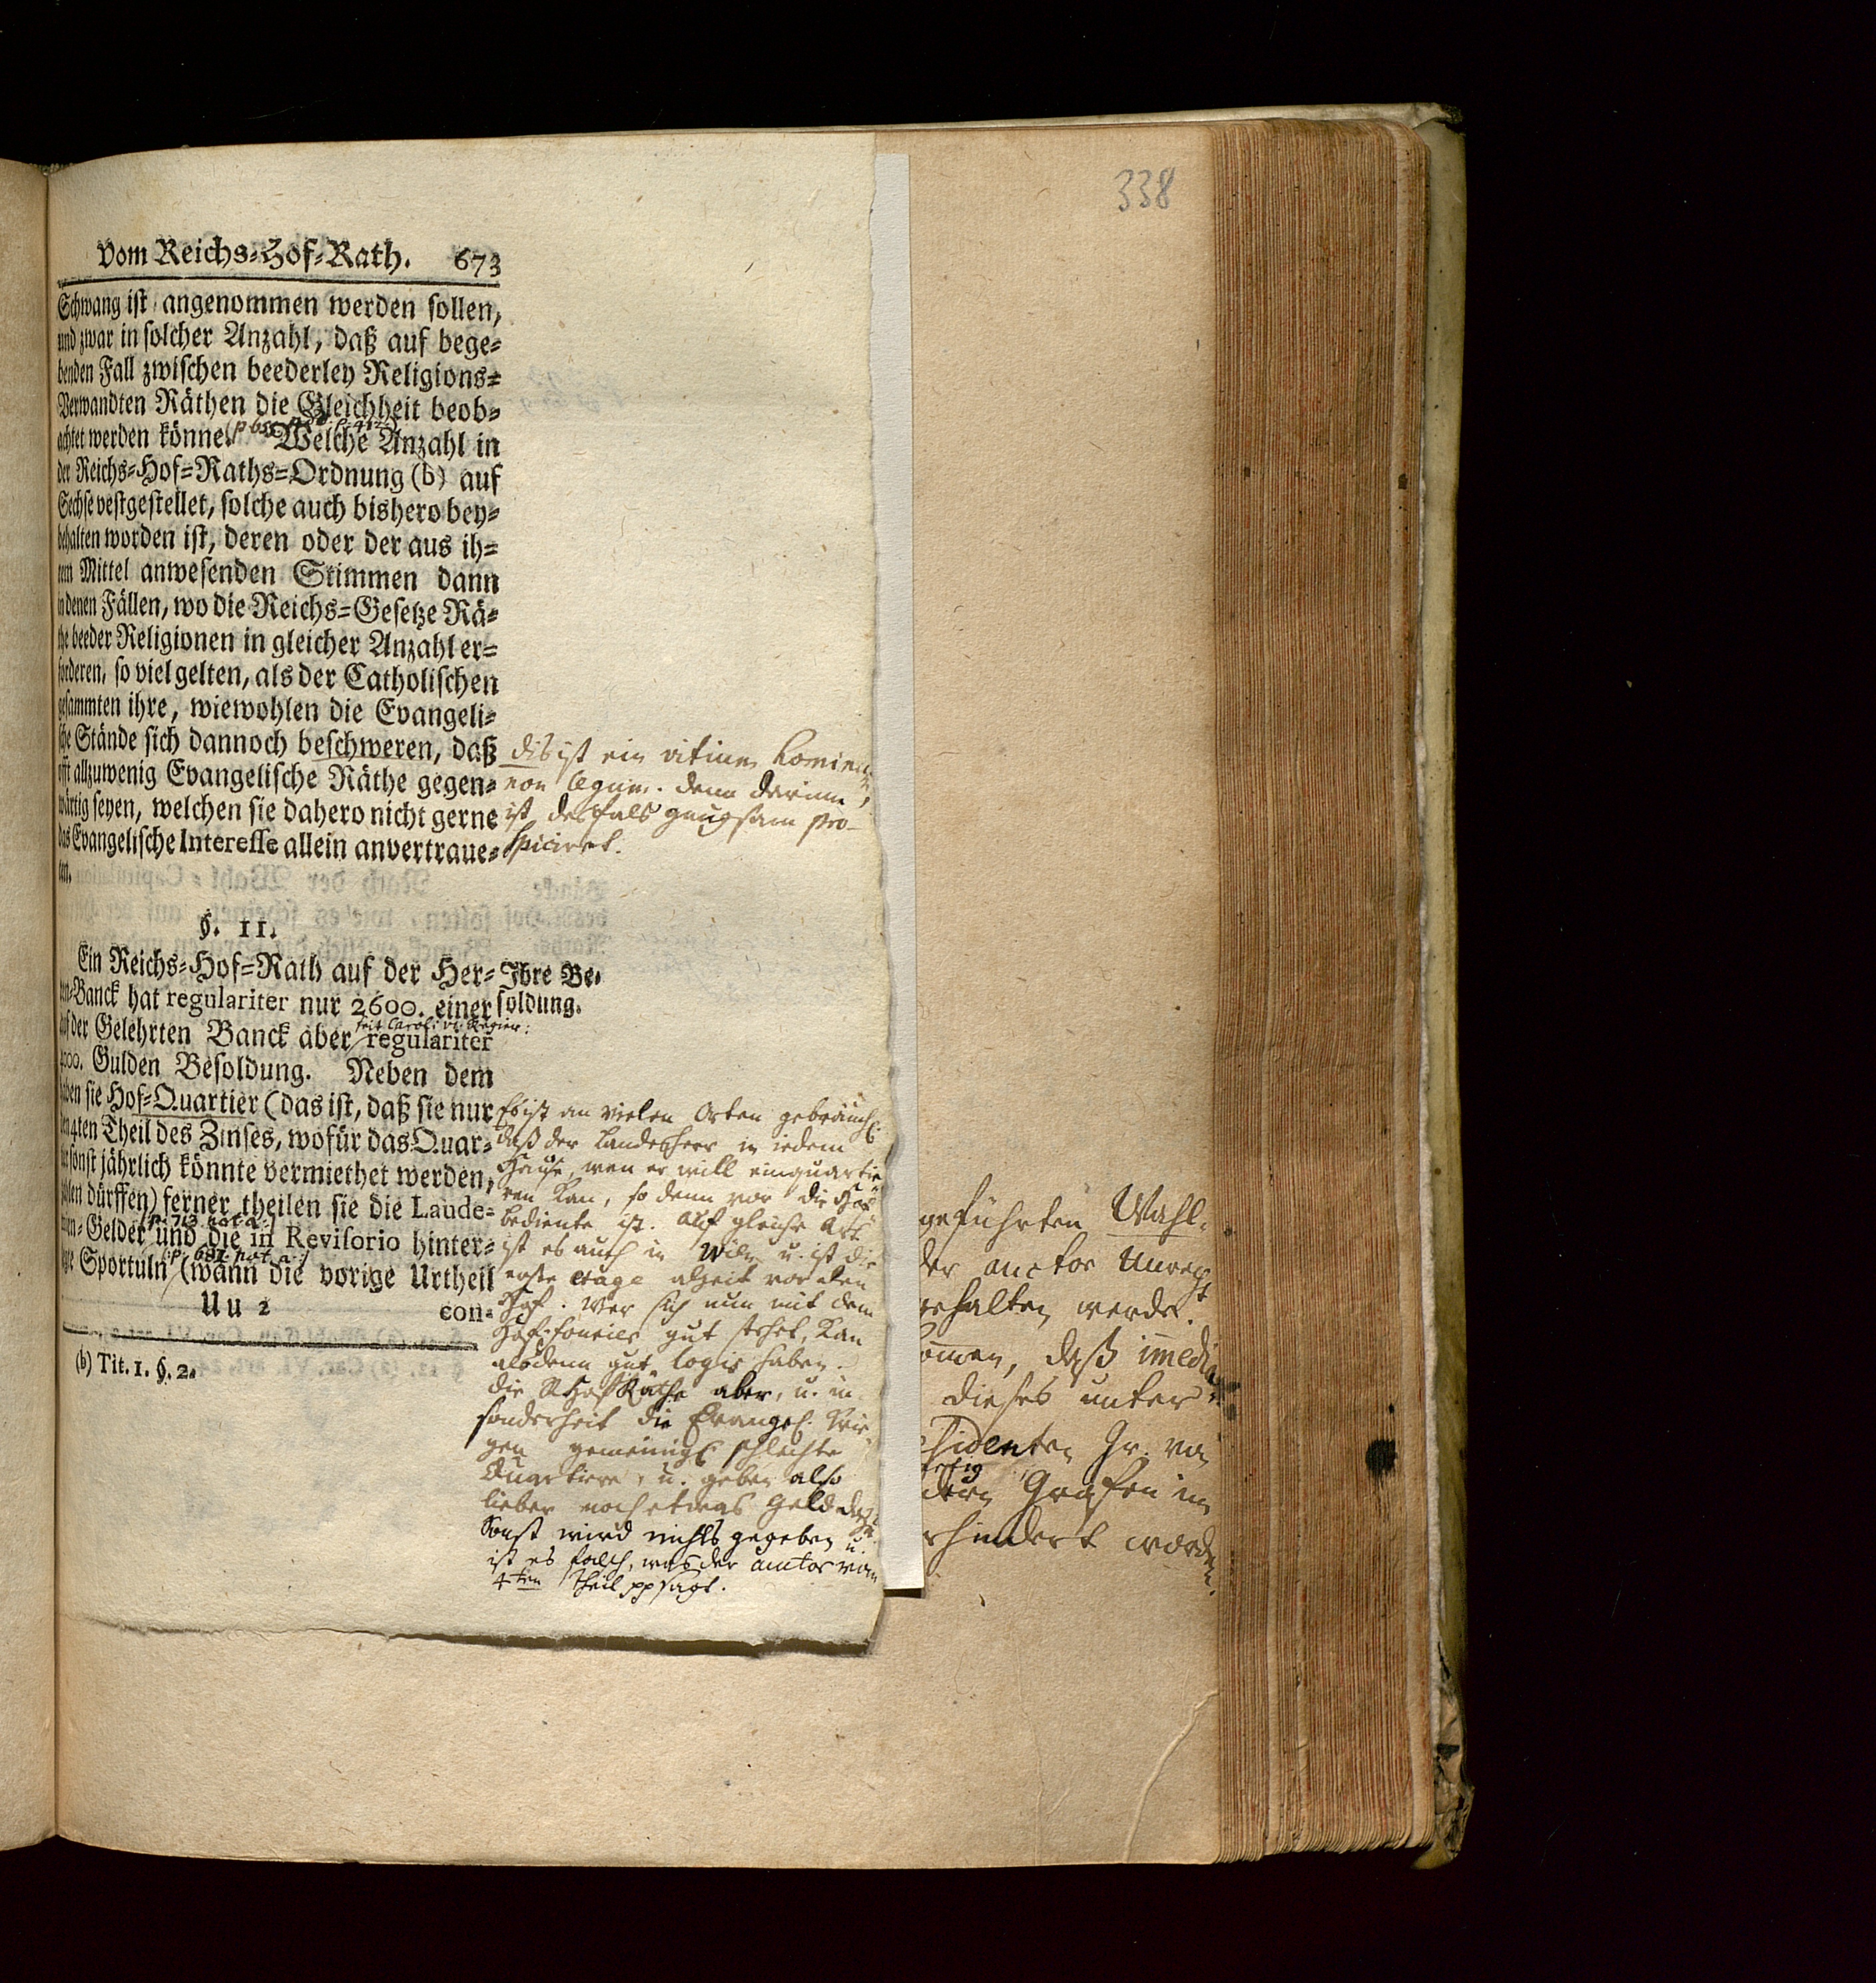 338
Vom Reichs=Hof=Rath. 673
Schwang ist angenommen werden sollen,
und zwar in solcher Anzahl, daß auf bege=
benden Fall zwischen beederley Religions=
Verwandten Räthen die Gleichheit beob=
achtet werden könne. Welche Anzahl in
der Reichs=Hof=Raths=Ordnung (b) auf
Sechse vestgestellet, solche auch bishero bey=
behalten worden ist, deren oder der aus ih=
rem Mittel anwesenden Stimmen dann
in denen Fällen, wo die Reichs=Gesetze Rä=
the beeder Religionen in gleicher Anzahl er=
forderen, so viel gelten, als der Catholischen
gesammten ihre, wiewohlen die Evangeli=
sche Stände sich dannoch beschweren, daß
offt allzuwenig Evangelische Räthe gegen=
wärtig seyen, welchen sie dahero nicht gerne
das Evangelische Interesse allein anvertraue=
ten.
dis ist ein vitium
non legum. denn darinn
ist desfals gnugsam pro-
spiciret.
§. 11.
Ein Reichs=Hof=Rath auf der Her=
ren=Banck hat regulariter nur 2600. einer
auf der Gelehrten Banck aber regulariter
seit Caroli VI. Regier:
4000. Gulden Besoldung. Neben dem
haben sie Hof=Quartier (das ist, daß sie nur
den 4ten Theil des Zinses, wofür das Quar=
tier sonst jährlich könnte vermiethet werden,
zahlen dürffen) ferner theilen sie die Laude=
mien=Gelder und die in Revisorio hinter=
(p. 713. not. a.)
legte Sportuln (wann die vorige Urtheil
(p. 691. not. a.)
Uu 2 con=
(b) Tit. 1. §. 2.
Ihre Be=
soldung.
Es ist an vielen Orten gebräuchl.
daß der Landesherr in iedem
Hause, wen er will einquartie
ren kan, so denn vor die Hof
bediente ist. Auf gleiche Art
ist es auch in Wien u. ist die
erste etage alzeit vor den
Hof. Wer sich nun mit dem
Hof-fourier gut stehet, kan
alsdenn gut logis haben.
die RHofRäthe aber, u. in
sonderheit die Evangel. krie
gen gemeinigl. schlechte
Quartiere, u. geben also
lieber noch etwas Geld dazu
Sonst wird nichts gegeben u.
ist es falsch, was der auctor vom
4ten Theil pp sagt.
geführten Wahl-
der auctor Unrecht
gehalten werde.
kommen, daß immedia
dieses unter
sidenten Gr. von
Grafen im
rhindert worden.